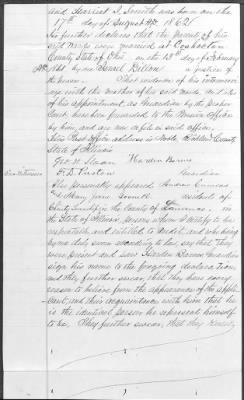 and Harriet J. Smith was born on the
17th day of August AD 1862.
He further declares that the parents of his
said Ward were married at Coshocton
County State of Ohio, on the 13th day of February
AD 1861 by one a justice of
the peace. That evidence of his intermarri
age with the mother of his said wards and also
of his appointment as Guardian by the proper
Court, have been forwarded to the Pension Office
by him, and are now on file in said office.
His Post Office address is Noble Richland County
State of Illinois
Geo. W. Sloan Harden Burns
F. D. Preston Guardian
Also personally appeared Andrew
& Mary Jane resident of
County
the State of Illinois, persons whom I certify to be
respectable and entitled to credit, and who being
by me duly sworn according to law, say that they
were present and saw Harden Burns Guardian
sign his name to the foregoing declaration,
and they further swear that they have every
reason to believe from the appearance of the appli-
cant, and their acquaintance with him that he
is the identical person he represents himself
to be. They further swear, that they